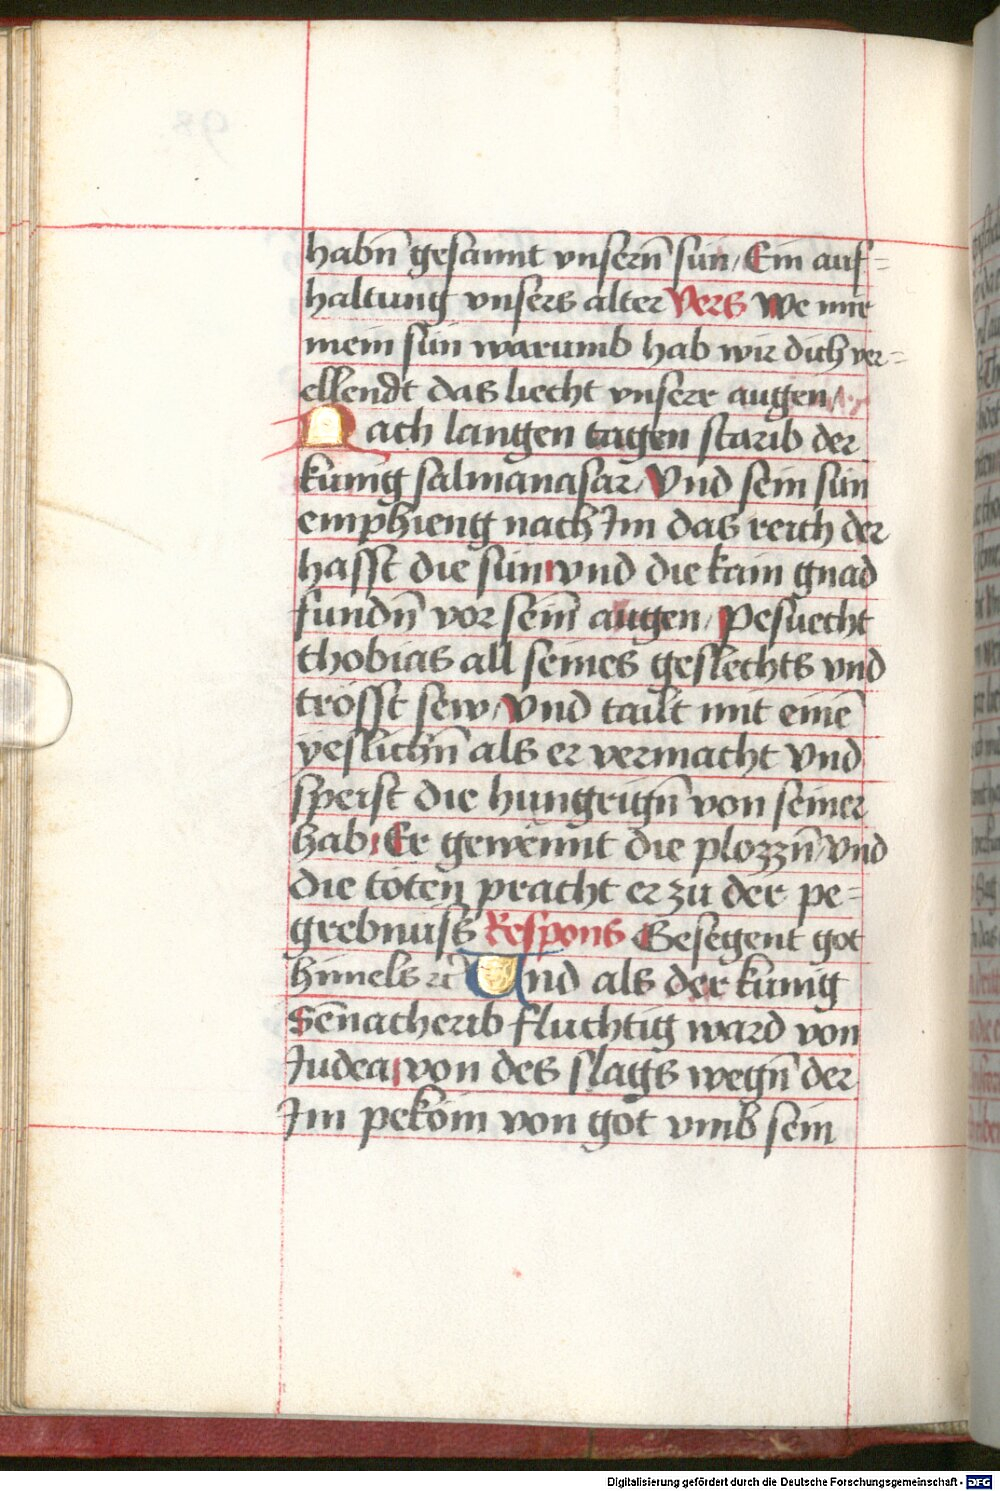 habn̄ gesannt vnsern̄ sün / Ein auf=
haltung vnsers alter Vers We mir
mein sün warumb hab wir dich ver=
ellendt das liecht vnsere augen /
Nach langen tagen starib der
künig salmanasar / Vnd sein sün
emphieng nach Im das reich der
hasst die sün vnd die kain gnad
fundn̄ vor sein̄ augen / Pesuecht
thobias all seines geslechts vnd
trösst sew / Vnd tailt mit einē
yeslichn̄ als er vermacht Vnd
speist die hungrign̄ von seiner
hab / Er gewennt die plozzn̄ / vnd
die töten pracht er zu der pe=
grebnuss Respons Gesegent got
himels zc̄ Vnd als der künig
Sēnacherib fluchtig ward von
Judea von des slags wegn̄ der
Im peköm von got vmb sein
Digitalisierung gefördert durch die Deutsche Forschungsgemeinschaft - DFG